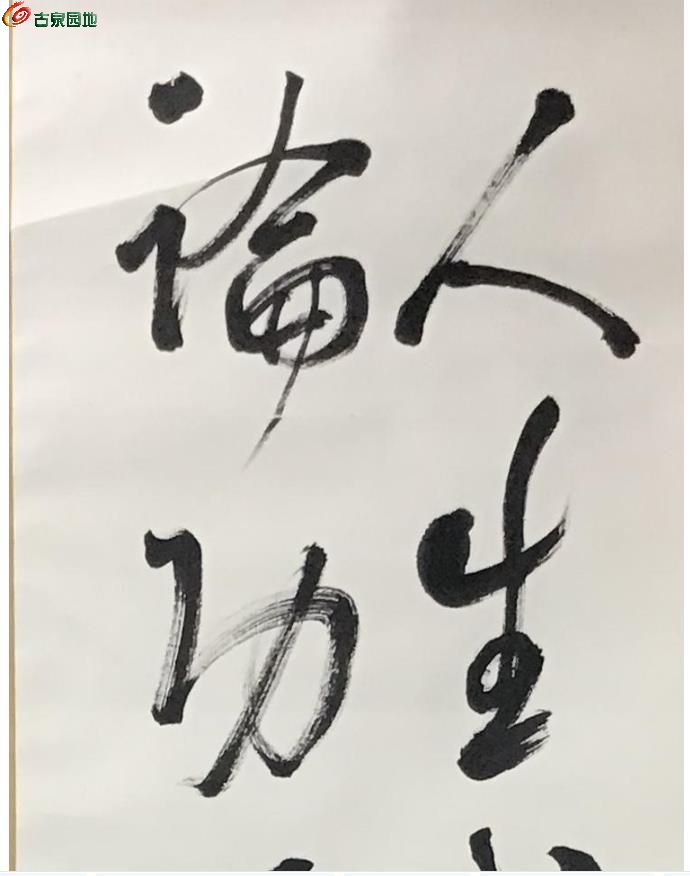 古泉园地
人生
論功